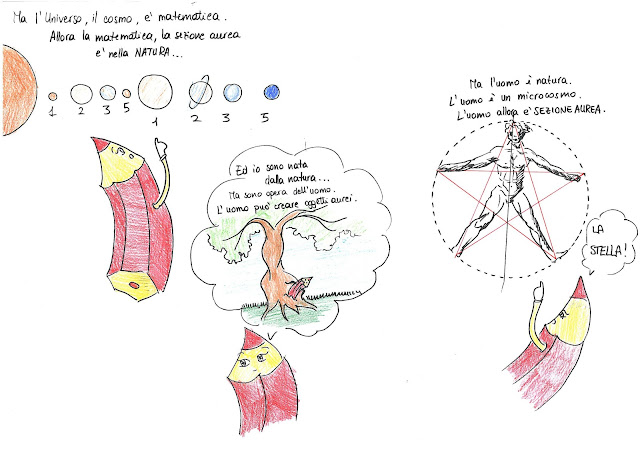 Ma l'Universo, il cosmo, e' matematica.
Allora la matematica, la sezione aurea
e' nella NATURA...
1 2 3 5 1 2 3 5
Ed io sono nata
dalla natura...
Ma sono opera dell'uomo.
L'uomo puo' creare oggetti aurei.
Ma l'uomo è natura.
L'uomo è un microcosmo.
L'uomo allora e' SEZIONE AUREA.
LA
STELLA!